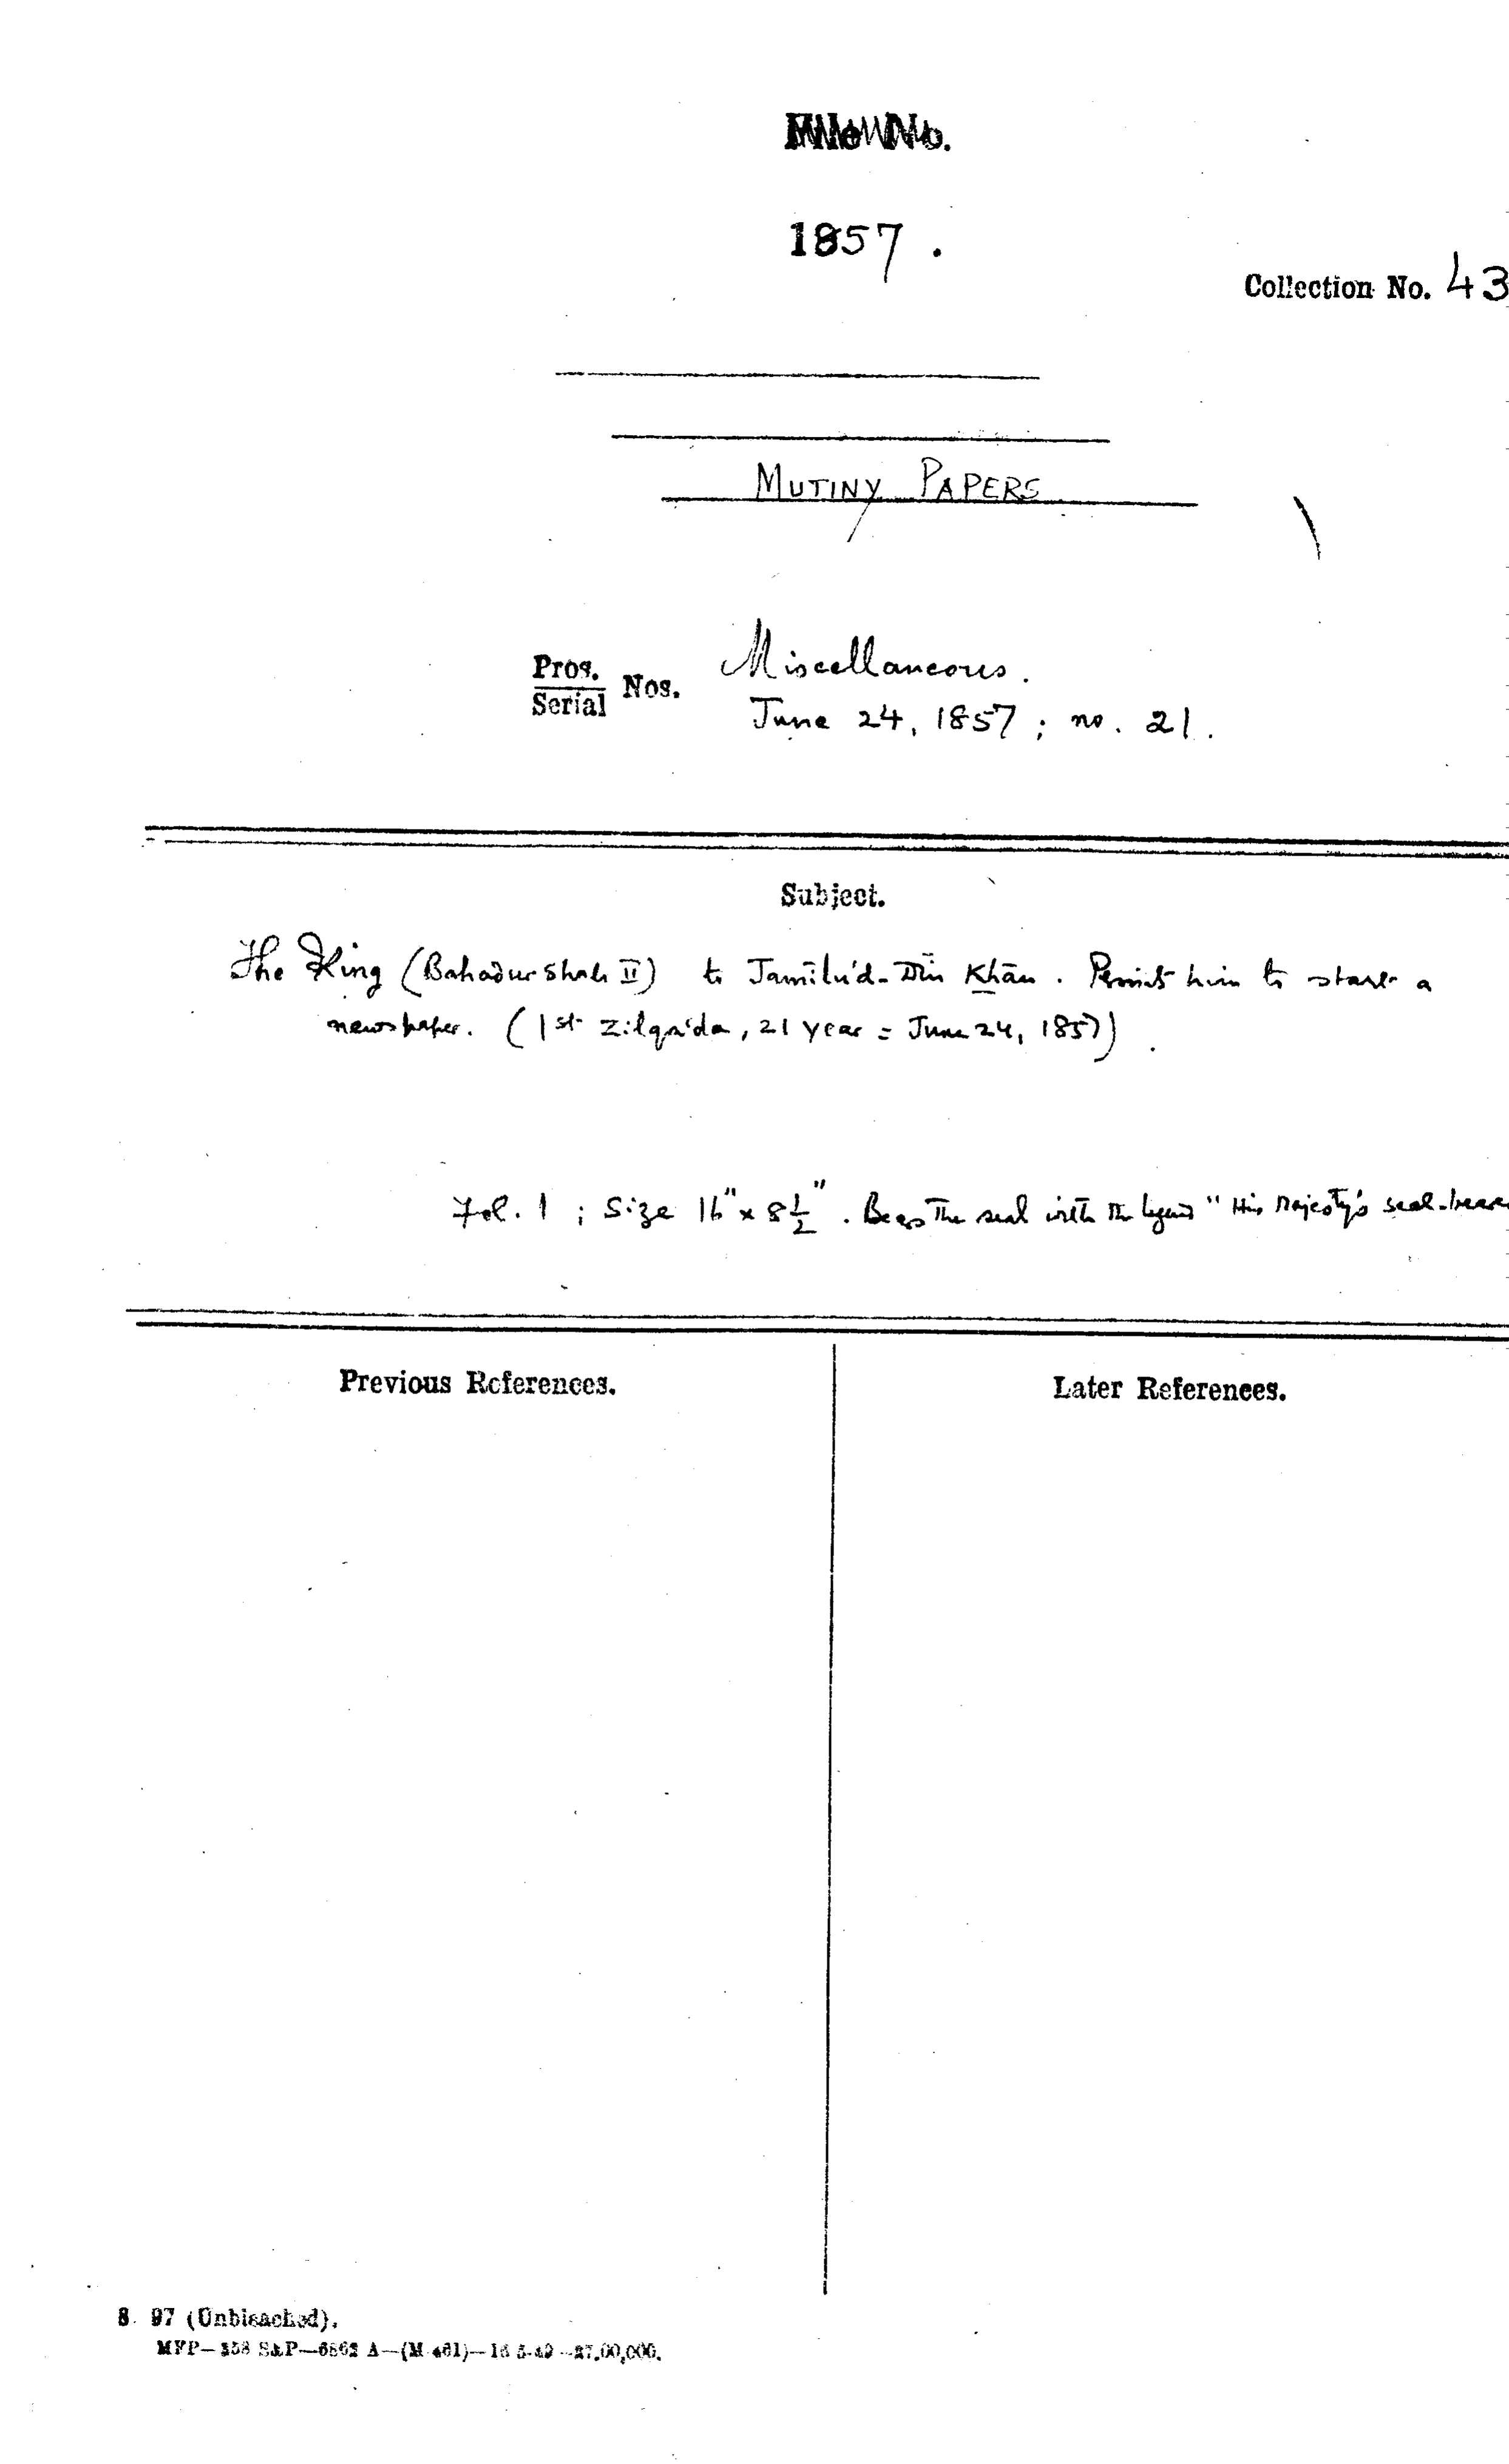 File No.
1857.
Collection No. 43
MUTINY PAPERS
Miscellaneous.
Pros.
Serial Nos.
June 24, 1857; no. 21.
Subject.
The King (Bahadur Shah II) to Jamilu'd-Din Khān. Permits him to start a
newspaper. (1st Zilqa'da, 21 year = June 24, 1857).
Fol. 1; Size 16" x 8½". Bears the seal with the legend "His Majesty's seal-bear
Previous References.
Later References.
S. 97 (Unbleached).
MFP—358 S&P—6862 A—(M-461)—16-5-49—27,00,000.